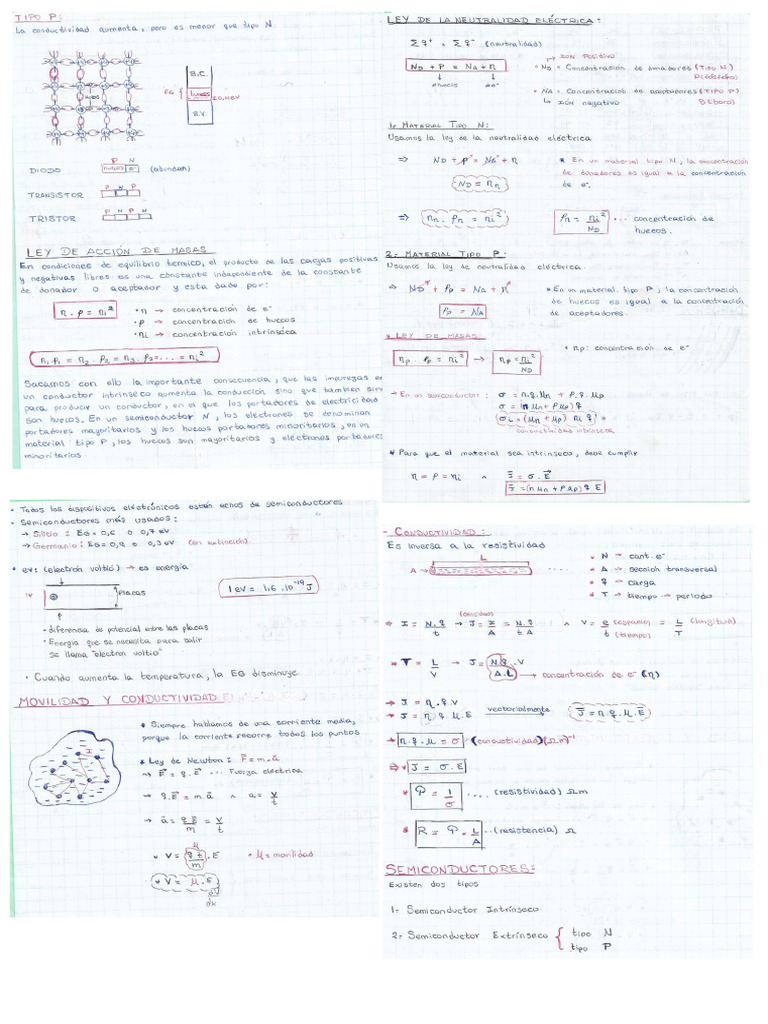 TIPO P:
La conductividad aumenta, pero es menor que tipo N.
B.C.
EG
huecos
B.V.
P N
DIODO huecos e- (abundan)
P N P
TRANSISTOR
P N P N
TRISTOR
LEY DE ACCIÓN DE MASAS
En condiciones de equilibrio termico, el producto de las cargas positivas
y negativas libres es una constante independiente de la constante
de donador o aceptador y esta dado por:
n . p = ni²
• n → concentración de e-
• p → concentración de huecos
• ni → concentración intrínseca
n₁.p₁ = n₂.p₂ = n₃.p₃ = ... = ni²
Sacamos con ello la importante consecuencia, que las impurezas en
un conductor intrínseco aumenta la conducción sino que tambien sirve
para producir un conductor, en el que los portadores de electricidad
son huecos. En un semiconductor N, los electrones se denominan
portadores mayoritarios y los huecos portadores minoritarios, en un
material tipo P, los huecos son mayoritarios y electrones portadores
minoritarios.
LEY DE LA NEUTRALIDAD ELÉCTRICA:
Σq⁺ = Σq⁻ (neutralidad)
ND + P = NA + n
huecos e-
→ ION POSITIVO
• ND = Concentración de donadores (TIPO N)
• NA = Concentración de aceptadores (TIPO P)
↳ IÓN negativo
1. MATERIAL TIPO N:
Usamos la ley de la neutralidad eléctrica
⇒ ND + p = NA + n
ND = nn
* En un material tipo N, la concentración
de donadores es igual a la concentración
de e-.
⇒ nn . pn = ni²
pn = ni² / ND ... concentración de
huecos.
2.- MATERIAL TIPO P:
Usamos la ley de neutralidad eléctrica.
⇒ ND + Pp = NA + n
Pp = NA
* En un material tipo P, la concentración
de huecos es igual a la concentración
de aceptadores.
* LEY DE MASAS:
np . Pp = ni² → np = ni² / ND
• np: concentración de e-
→ En un semiconductor: σ = n.q.μn + p.q.μp
σ = (nμn + pμp)q
σi = (μn + μp) ni q
conductividad intrínseca
* Para que el material sea intrínseco, debe cumplir
n = p = ni ∧ J = σ.E
J = (nμn + pμp)q E
• Todos los dispositivos electrónicos están echos de semiconductores
• Semiconductores más usados:
→ Silicio: EG = 0,6 o 0,7 eV
→ Germanio: EG = 0,2 o 0,3 eV (en extinción)
• eV: (electron voltio) → es energía
1V
placas
1eV = 1.6 . 10⁻¹⁹ J
• diferencia de potencial entre las placas
• Energía que se necesita para salir
se llama "electron voltio"
• Cuando aumenta la temperatura, la EG disminuye
MOVILIDAD Y CONDUCTIVIDAD
* Siempre hablamos de una corriente media,
porque la corriente recorre todos los puntos
* Ley de Newton: F = m.a
→ F = q.E ... Fuerza eléctrica
→ q.E = m.a ∧ a = v/t
→ a = q.E/m = v/t
μ
* V = (q.t/m).E • μ = movilidad
* V = μ.E
dx
- CONDUCTIVIDAD:
Es inversa a la resistividad
L
A →
* N → cant. e-
* A → sección transversal
* q → carga
* T → tiempo → período
(densidad)
⇒ I = N.q/t → J = I/A = N.q/tA ∧ V = e (espacio) / t (tiempo) = L (longitud) / T
* T = L/V → J = N.q.V / A.L → concentración de e- (n)
→ J = n.q.V
→ J = n.q.μ.E vectorialmente J = n.q.μ.E
→ n.q.μ = σ (conductividad)(Ωm)⁻¹
⇒ * J = σ.E
* ρ = 1/σ .... (resistividad) Ωm
* R = ρ.L/A ..(resistencia) Ω
SEMICONDUCTORES:
Existen dos tipos
1- Semiconductor Intrínseco
2- Semiconductor Extrínseco { tipo N
tipo P